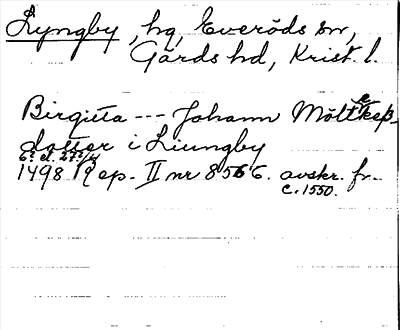 Lyngby, hg, Everöds sn,
Gärds hd, Krist. l.
Birgitta --- Johann Möltkeß-
dotter i Liungby
6? el. 27?/4
1498 Rep. II nr 8566. avskr. fr.
c. 1550.